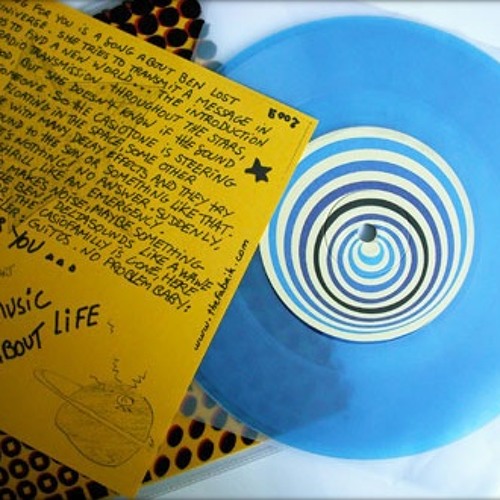 NG FOR YOU IS A SONG ABOUT BEN LOST
UNIVERSE. SHE TRIES TO TRANSMIT A MESSAGE IN
TO FIND A NEW WORLD... THE INTRODUCTION
RADIO TRANSMISSION THROUGHOUT THE STARS,
BUT SHE DOESN'T KNOW IF THE SOUND
SOMEONE. SO THE CASIOTONE IS STEERING
FLOATING IN THE SPACE SOME OTHER
WITH MANY DELAY EFFECTS AND THEY TRY
BOUND TO THE OR SOMETHING LIKE THAT.
NOTHING, NO ANSWER. SUDDENLY,
DRILL LIKE AN EMERGENCY.
MAKES NOISE, MAYBE SOMETHING
BEN DELTASOUNDS LIKE A WAVE
CASIOFAMILY IS GONE. HERE
GUITOS. NO PROBLEM BABY:
YOU...
2003
www.thefabrik.com
MUSIC
ABOUT LIFE